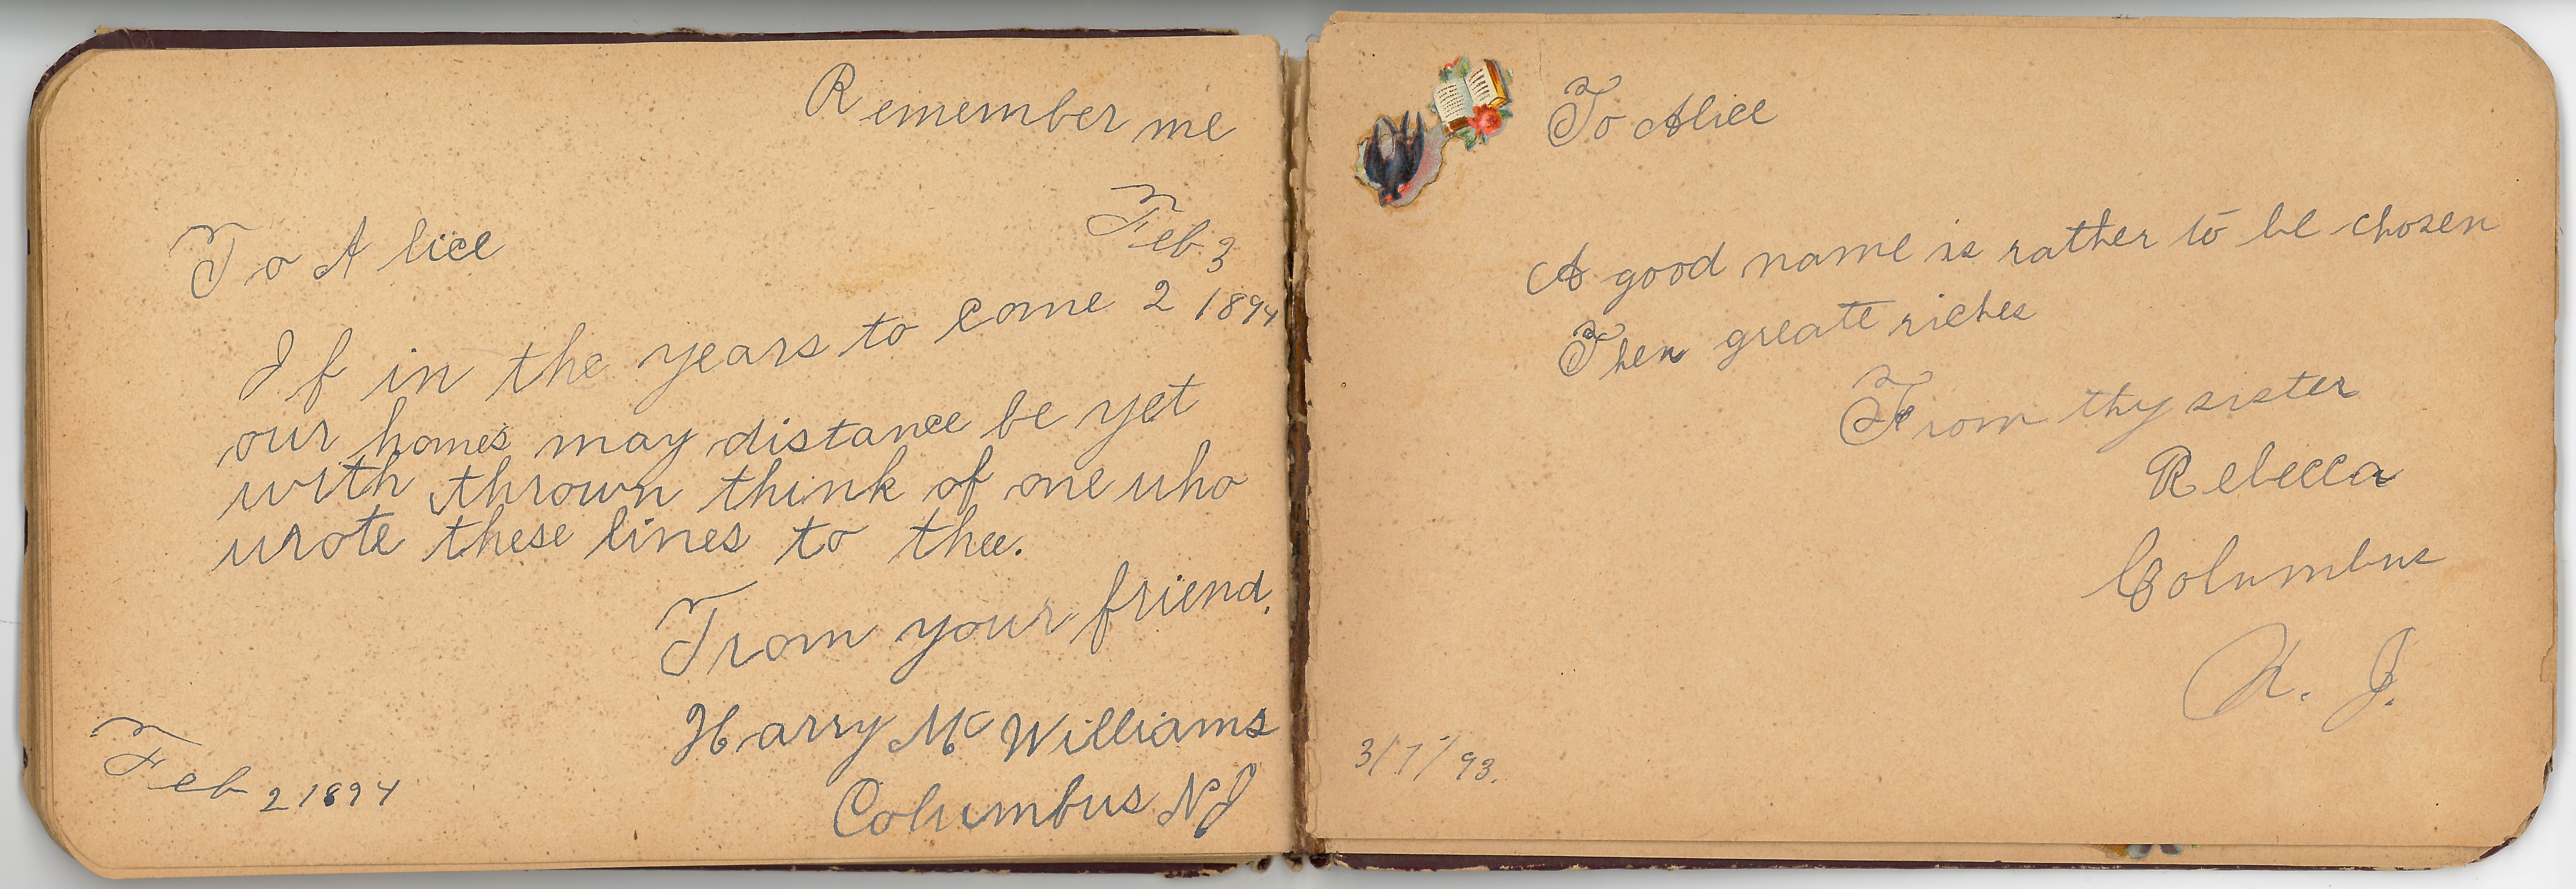 Remember me
Feb. 3
To Alice
2 1894
If in the years to come
our homes may distance be yet
with thrown think of one who
wrote these lines to thee.
From your friend.
Harry Mc Williams
Columbus NJ
Feb 2 1894
To Alice
A good name is rather to be chosen
Then greate riches
From thy sister
Rebecca
Columbus
N. J.
3/7/93.